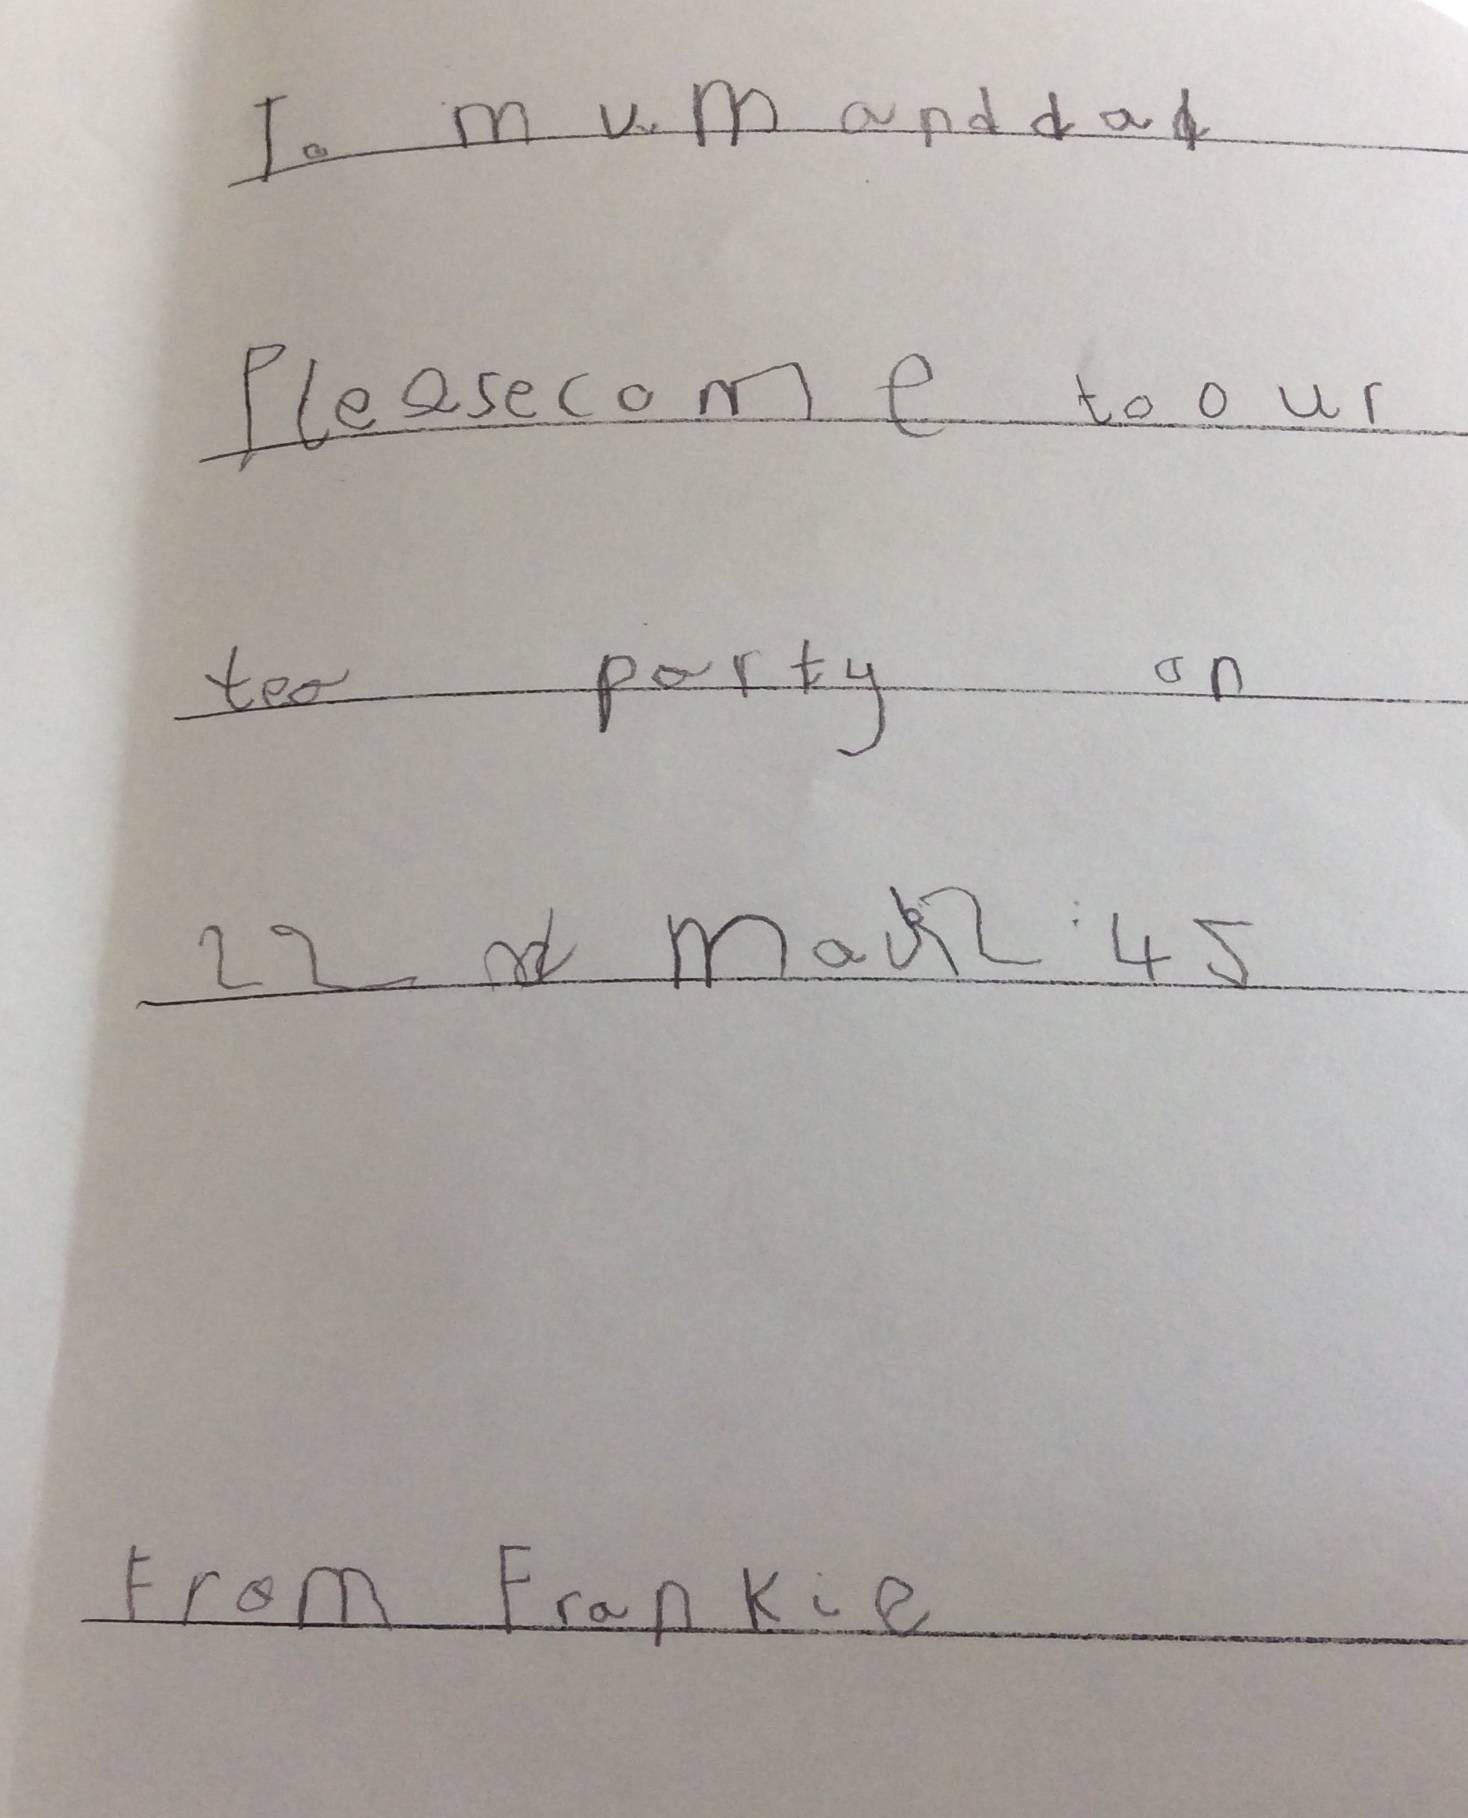 To mum and dad
Please come to our
tea party on
22nd 2:45
From Frankie